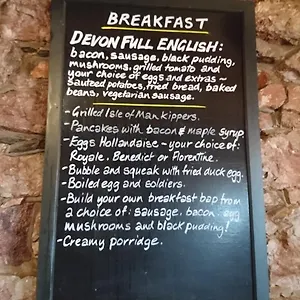 BREAKFAST
DEVON FULL ENGLISH:
bacon, sausage, black pudding,
mushrooms, grilled tomato and
your choice of eggs and extras ~
sauteed potatoes, fried bread, baked
beans, vegetarian sausage.
- Grilled Isle of Man kippers.
- Pancakes with bacon & maple syrup
- Eggs Hollandaise - your choice of:
Royale, Benedict or Florentine.
- Bubble and squeak with fried duck egg.
- Boiled egg and soldiers.
- Build your own breakfast bap from
a choice of: sausage, bacon, egg
mushrooms and black pudding!
- Creamy porridge.